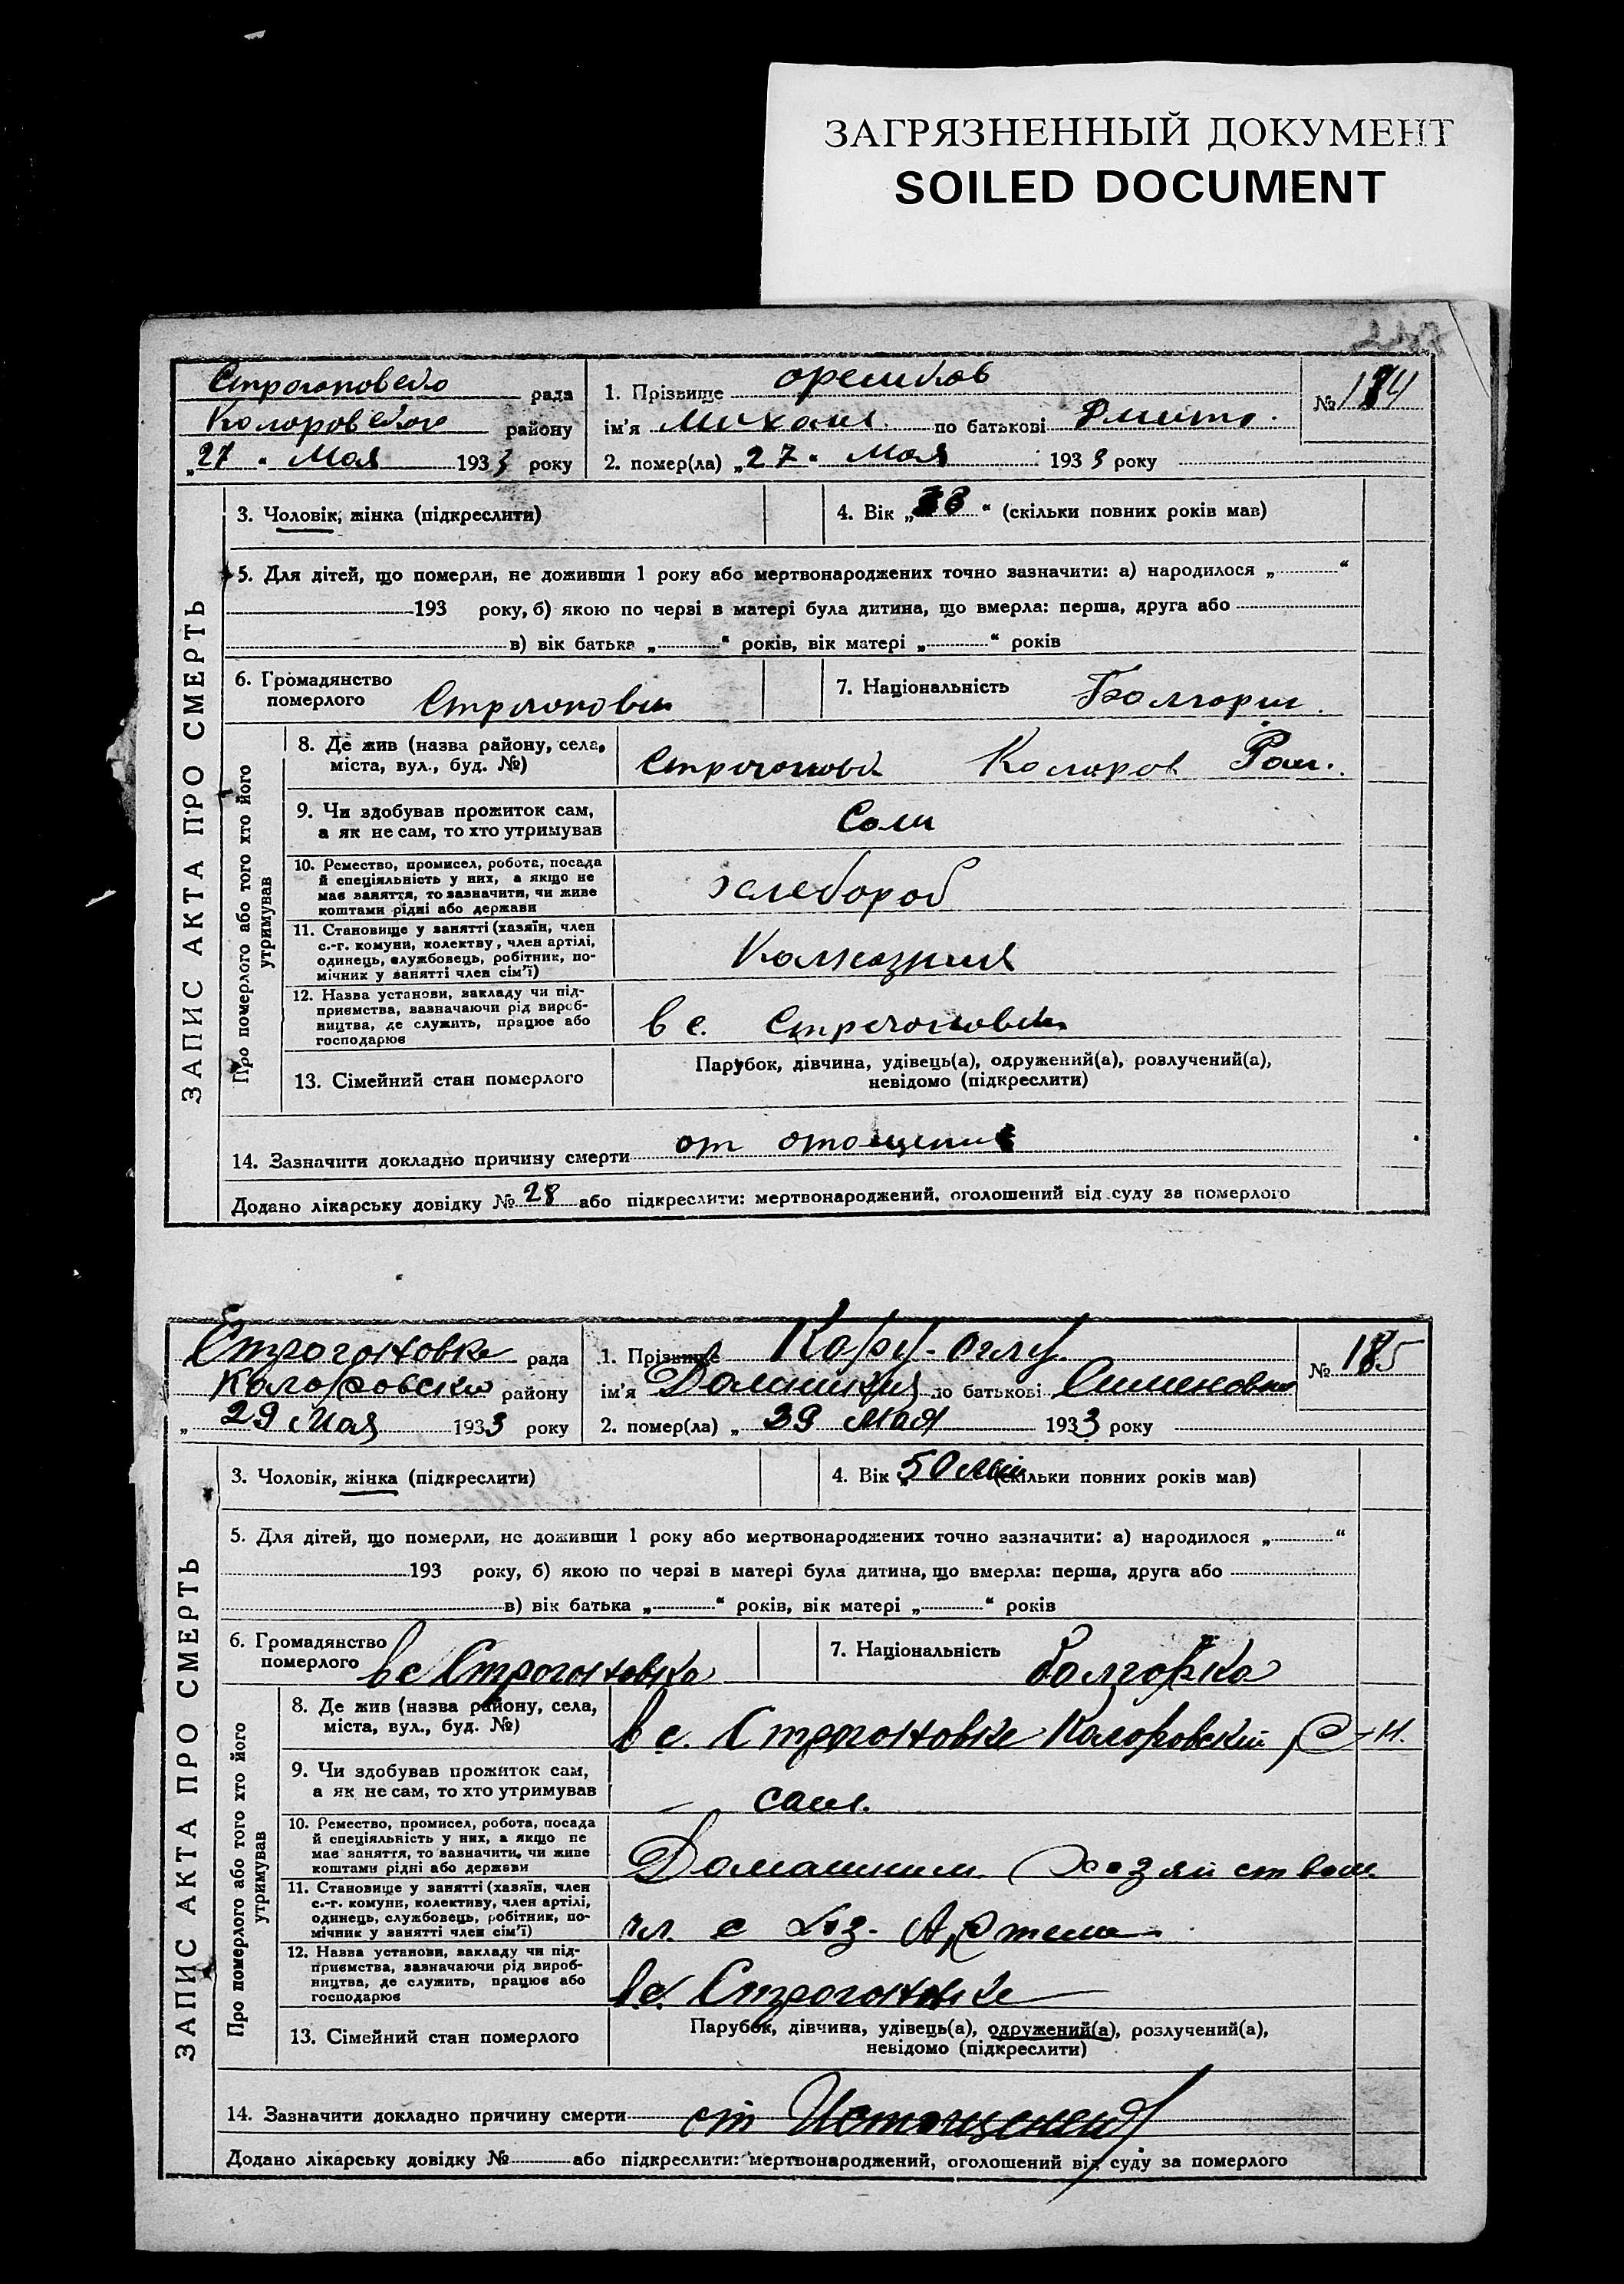 ЗАГРЯЗНЕННЫЙ ДОКУМЕНТ
SOILED DOCUMENT
ЗАПИС АКТА ПРО СМЕРТЬ
рада 1. Прізвище Орешков № 184
района ім'я Михаил по батькові Дмитр.
„27“ Мая 1933 року 2. помер(ла) „27“ Мая 1933 року
3. Чоловік, жінка (підкреслити) 4. Вік „ “ (скільки повних років мав)
5. Для дітей, що померли, не доживши 1 року або мертвонароджених точно зазначити: а) народилося „ “
193 року, б) якою по черзі в матері була дитина, що вмерла: перша, друга або
в) вік батька „ “ років, вік матері „ “ років
6. Громадянство
померлого
7. Національність
Про померлого або того хто його
утримував
8. Де жив (назва району, села,
міста, вул., буд. №)
Коларов Рай.
9. Чи здобував прожиток сам,
а як не сам, то хто утримував
Сам
10. Ремество, промисел, робота, посада
й спеціяльність у них, а якщо не
має заняття, то зазначити, чи живе
коштами рідні або держави
хлебороб
11. Становище у занятті (хазяїн, член
с.-г. комуни, колектву, член артілі,
одинець, службовець, робітник, по-
мічник у занятті член сім'ї)
12. Назва установи, закладу чи під-
приємства, зазначаючи рід вироб-
ництва, де служить, працює або
господарює
в с.
13. Сімейний стан померлого
Парубок, дівчина, удівець(а), одружений(а), розлучений(а),
невідомо (підкреслити)
14. Зазначити докладно причину смерти от отощения
Додано лікарську довідку № 28 або підкреслити: мертвонароджений, оголошений від суду за померлого
ЗАПИС АКТА ПРО СМЕРТЬ
Строгоновке рада 1. Прізвище Кару-оглу № 185
району ім'я по батькові
„ 29 Мая 1933 року 2. помер(ла) „ 29 Мая 1933 року
3. Чоловік, жінка (підкреслити) 4. Вік „50 (скільки повних років мав)
5. Для дітей, що померли, не доживши 1 року або мертвонароджених точно зазначити: а) народилося „ “
193 року, б) якою по черзі в матері була дитина, що вмерла: перша, друга або
в) вік батька „ “ років, вік матері „ “ років
6. Громадянство
померлого
в с Строгоновка
7. Національність
болгорка
Про померлого або того хто його
утримував
8. Де жив (назва району, села,
міста, вул., буд. №)
в с. Строгоновке Коларовский р-н.
9. Чи здобував прожиток сам,
а як не сам, то хто утримував
сам.
10. Ремество, промисел, робота, посада
й спеціяльність у них, а якщо не
має заняття, то зазначити, чи живе
коштами рідні або держави
Домашним хозяйством
11. Становище у занятті (хазяїн, член
с.-г. комуни, колективу, член артілі,
одинець, службовець, робітник, по-
мічник у занятті член сім'ї)
чл. с хоз. Артели
12. Назва установи, закладу чи під-
приємства, зазначаючи рід вироб-
ництва, де служить, працює або
господарює
в с. Строгоновке
13. Сімейний стан померлого
Парубок, дівчина, удівець(а), одружений(а), розлучений(а),
невідомо (підкреслити)
14. Зазначити докладно причину смерти от Истощения
Додано лікарську довідку № або підкреслити: мертвонароджений, оголошений від суду за померлого